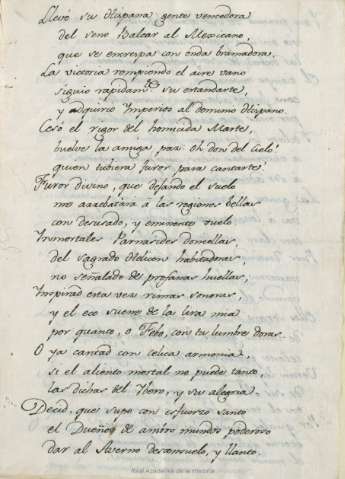 Llevó su Hispana gente vencedora
del seno Balear al Mexicano,
que se encrespa con onda bramadora.
La victoria rompiendo el ayre vano
siguio rapidam.te su estandarte,
y adquirió Ymperios al dominio Hispano.
Cesó el rigor del homicida Marte,
buelve la amiga paz: oh don del cielo!
quien tubiera furor para cantarte!
Furor divino, que dejando el suelo
me arrebatára á las regiones bellas
con desusado, y eminente vuelo
Inmortales Parnasides doncellas,
del sagrado Helicon habitadoras,
no señalado de profanas huellas,
Inspirad esta vez rimas sonoras,
y el eco suene de la lira mia
por quanto, o Febo, con tu lumbre doras.
O ya cantad con celica armonia,
si el aliento mortal no puede tanto,
las dichas del Ybero, y su alegria.
Decid, que supo con esfuerzo santo
el Dueño de ambos mundos poderoso
dar al Averno desconsuelo, y llanto.
Real Academia de la Historia